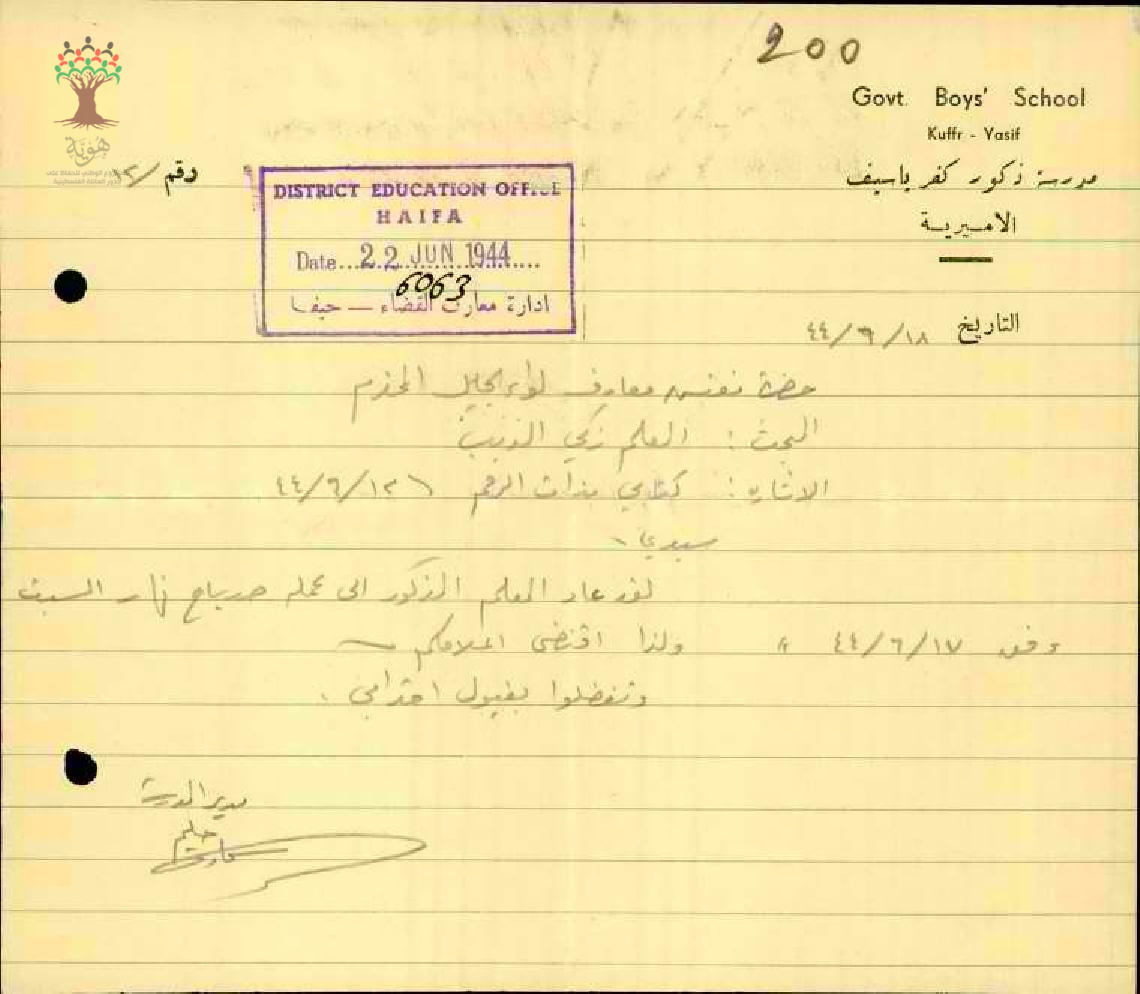 200
Govt. Boys' School
Kuffr - Yasif
مدرسة ذكور كفر ياسيف
الاميرية
هوية
رقم /١٢
DISTRICT EDUCATION OFFICE
HAIFA
Date 22 JUN 1944
6063
ادارة معارف القضاء — حيفا
التاريخ ١٨/٦/٤٤
حضرة مفتش معارف لواء الجليل المحترم
البحث : المعلم زكي
الاشارة : كتابي بذات الرقم ١٢/٦/٤٤
سيدي،
لقد عاد المعلم المذكور الى عمله صباح نهار السبت
وفق ١٧/٦/٤٤ ولذا اقتضى اعلامكم
وتفضلوا بقبول احترامي .
مدير المدرسة
حليم